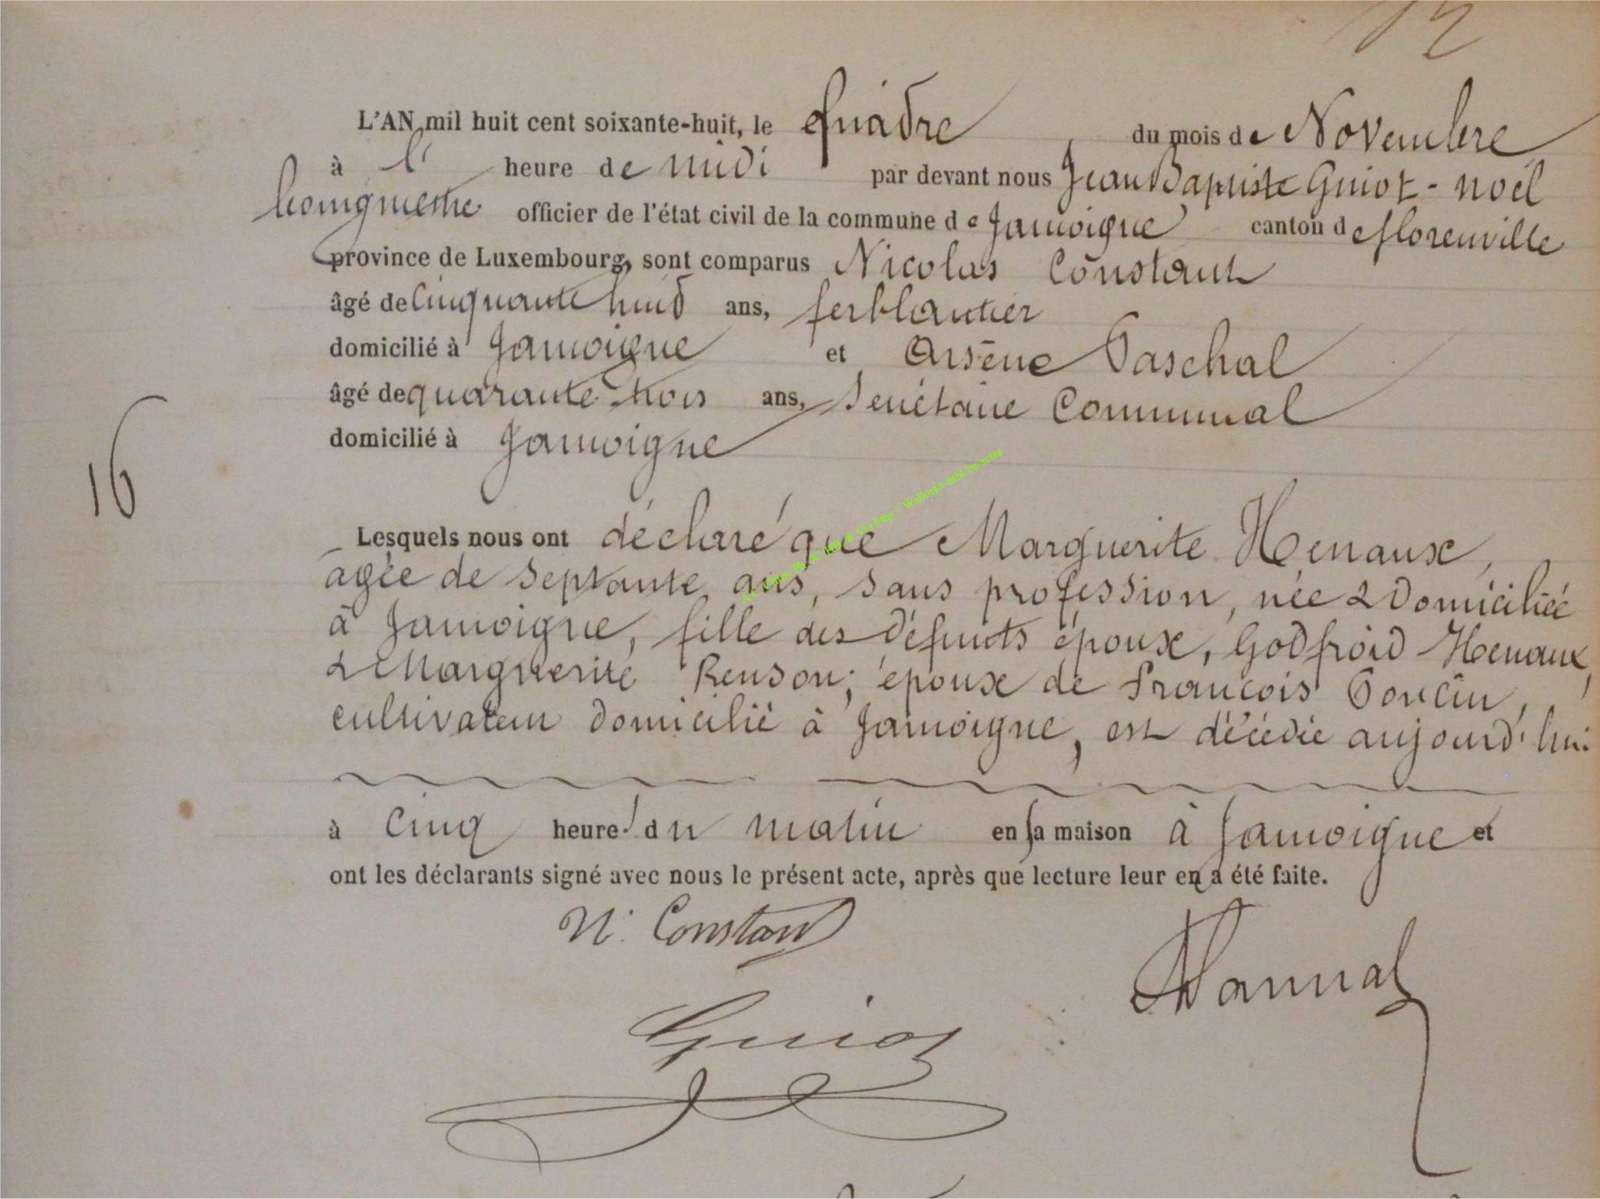 L'AN mil huit cent soixante-huit, le quatre du mois de Novembre
à l' heure de midi par devant nous Jean Baptiste Guiot-noël
officier de l'état civil de la commune de Jamoigne canton de florenville
province de Luxembourg, sont comparus Nicolas Constant
âgé de cinquante huit ans, ferblantier
domicilié à Jamoigne et Arsène Paschal
âgé de quarante trois ans, Secrétaire Communal
domicilié à Jamoigne
16
Lesquels nous ont déclaré que Marguerite Henaux,
agée de septante ans, sans profession, née & domiciliée
à Jamoigne, fille des défunts époux, Godfroid Henaux,
& Marguerite Renson; épouse de François Poncin,
cultivateur domicilié à Jamoigne, est décédée aujourd'hui
à cinq heures du matin en sa maison à Jamoigne et
ont les déclarants signé avec nous le présent acte, après que lecture leur en a été faite.
N. Constant
Guiot